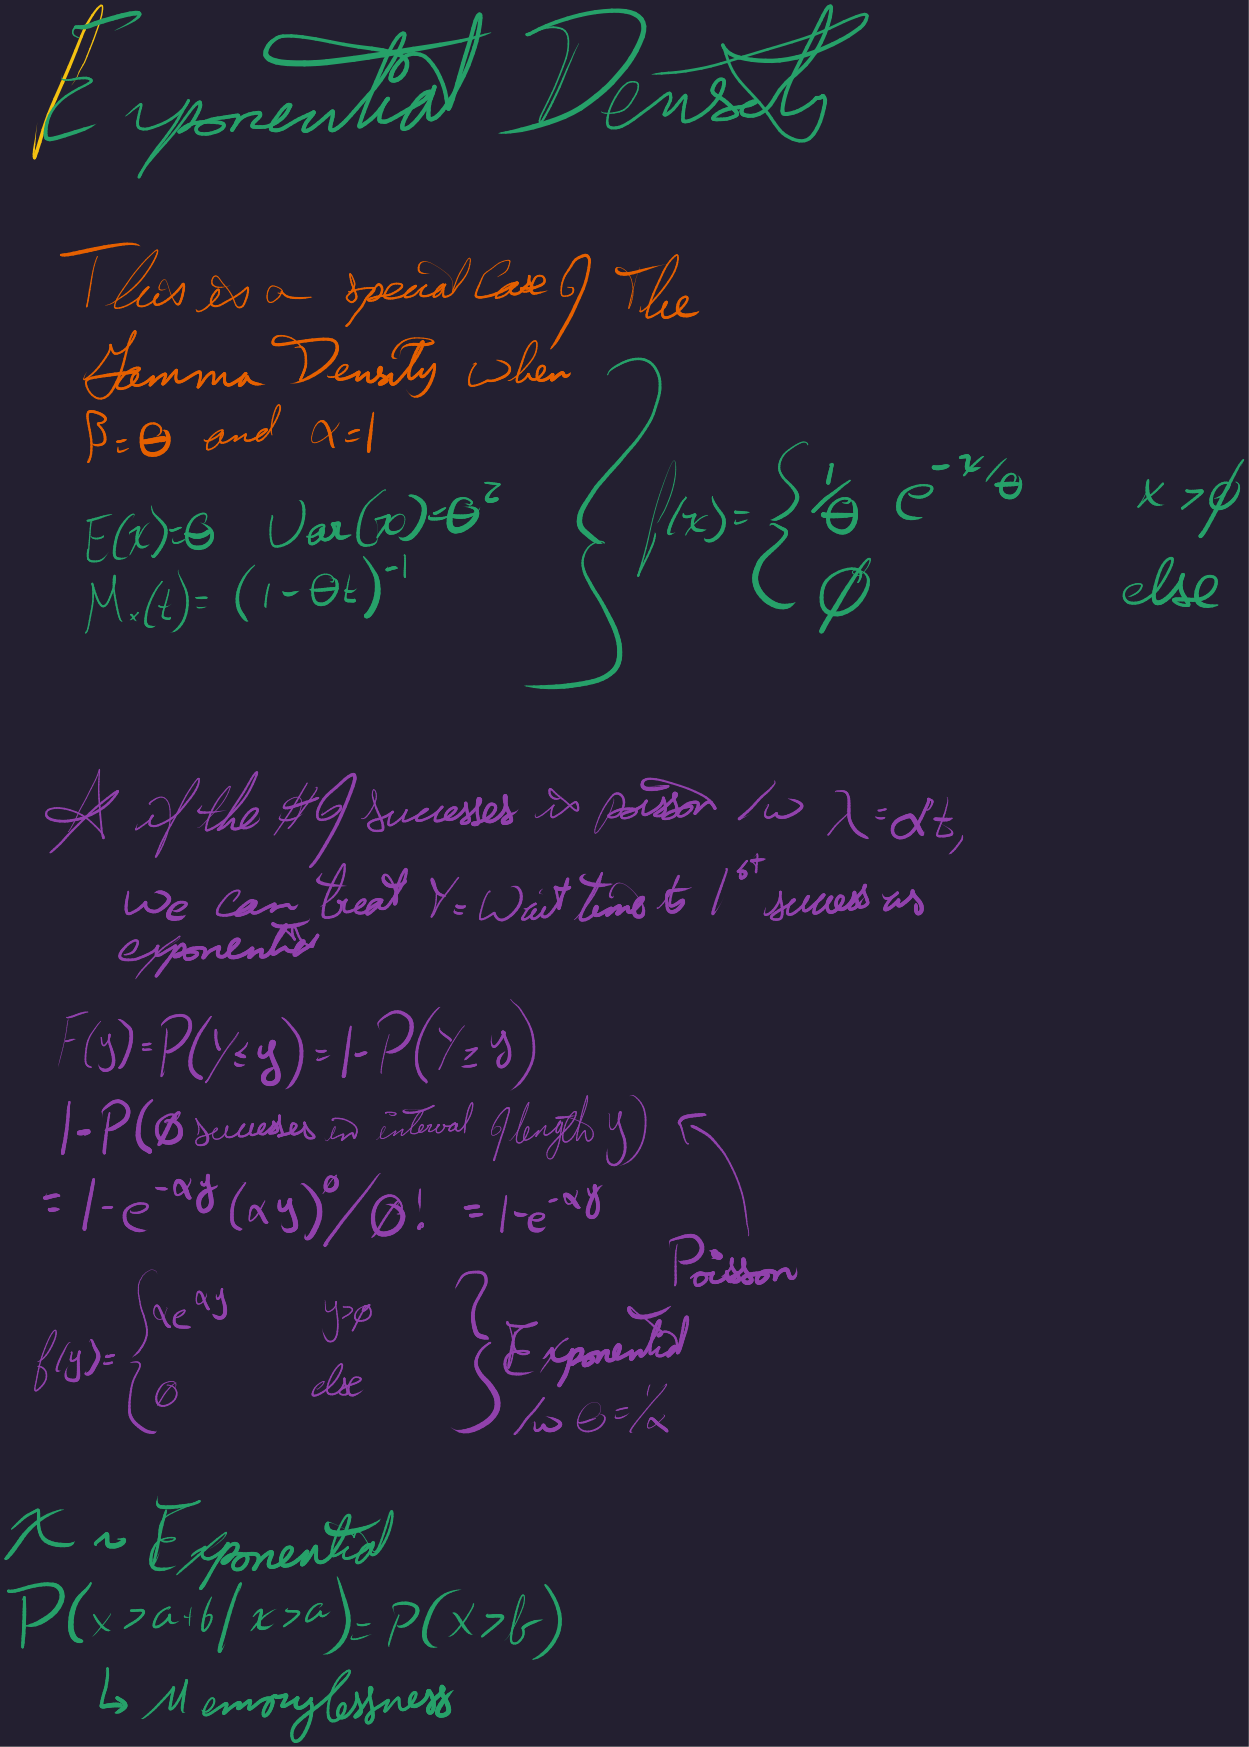 Exponential Density
This is a special Case of The
Gamma Density when
β=θ and α=1
E(x)=θ Var(x)=θ²
Mₓ(t)=(1-θt)⁻¹
f(x)= { 1/θ e^(-x/θ) x>φ
φ else
☆ if the # of successes is poisson /w λ=αt,
we can treat Y=Wait time to 1st success as
exponential
F(y)=P(Y≤y)=1-P(Y≥y)
1-P(φ successes in interval of length y)
=1-e^(-αy)(αy)^φ/φ! =1-e^(-αy)
Poisson
f(y)= { αe^(αy) y>φ
φ else
} Exponential
/w θ=1/α
X ~ Exponential
P(x>a+b|x>a)=P(x>b)
↳ Memorylessness